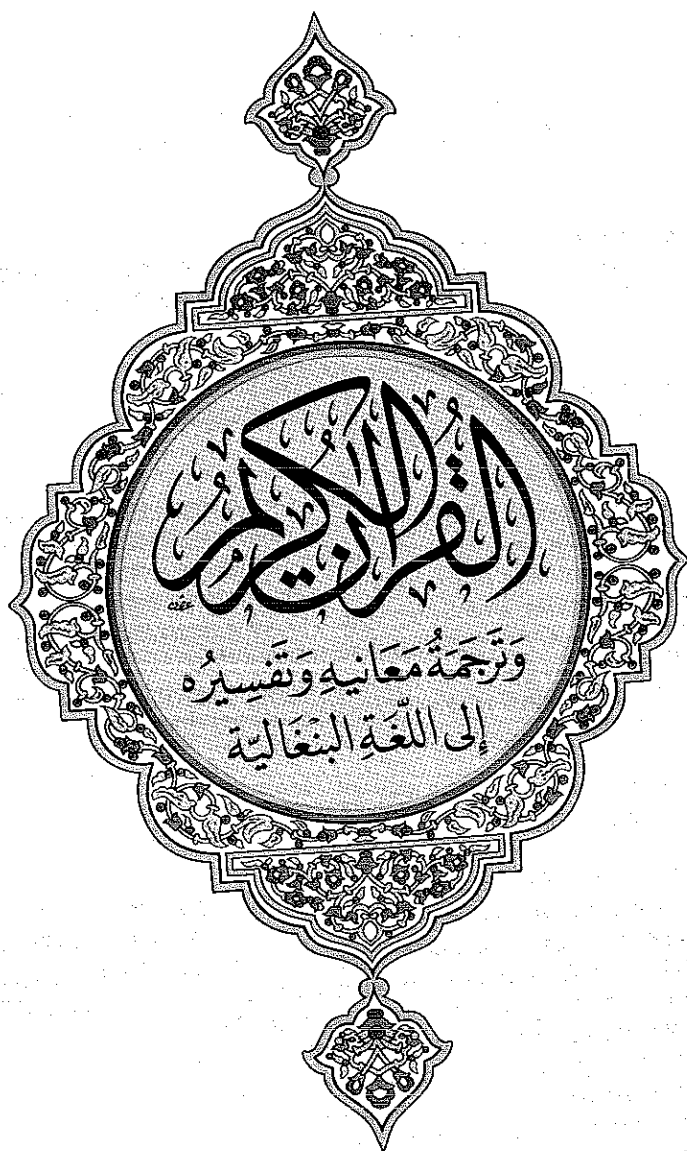 القُرآنُ الكَرِيمُ
وَتَرجَمَةُ مَعَانيهِ وَتَفسِيرُه
إِلى اللُّغَةِ البَنْغَاليَّة